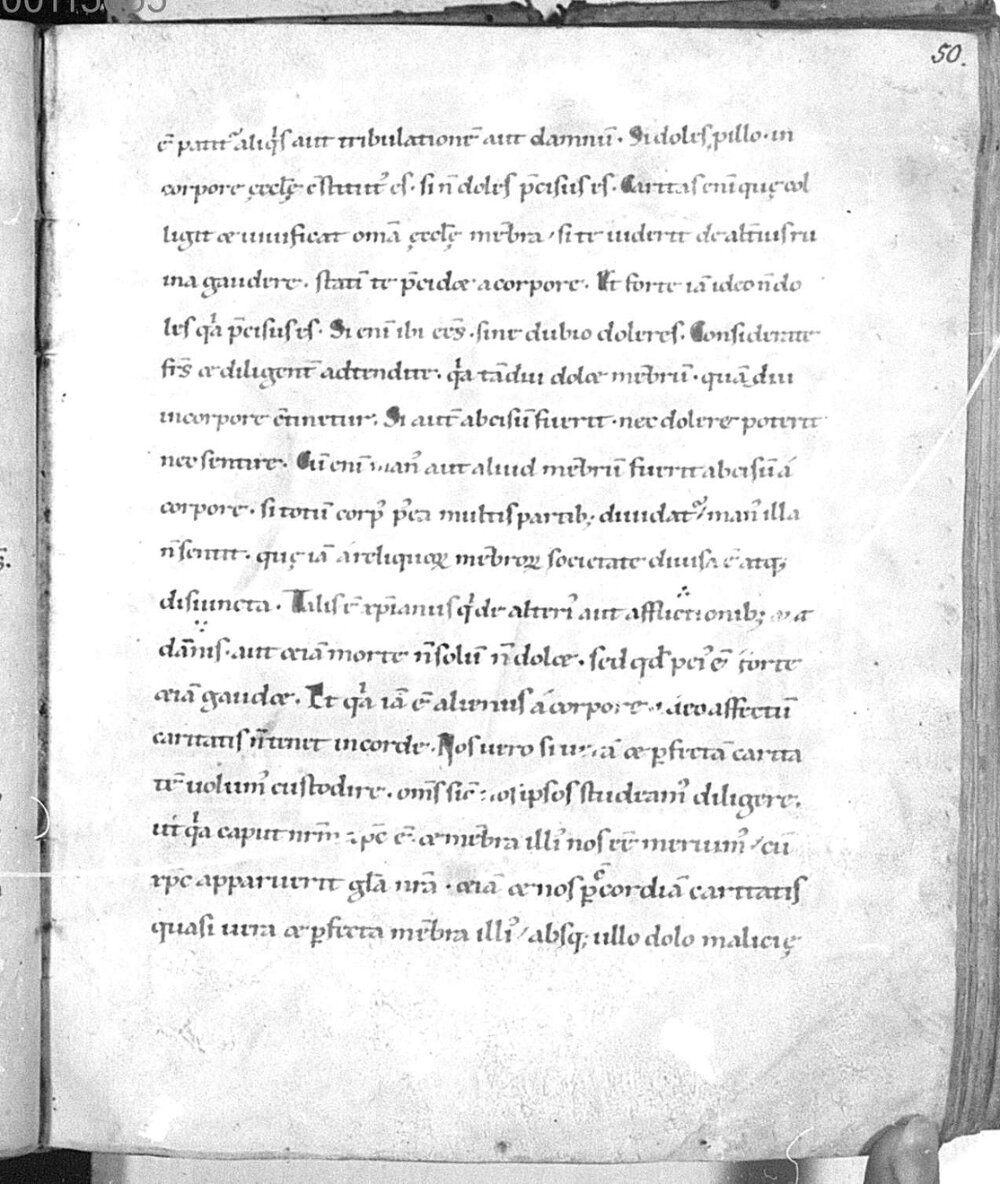 50.
ē patit᷑ aliq̇s aut tribulationē aut damnū · Si doles p illo · in
corpore ęcclę c̄stitut᾽ es · si n̄ doles p̄cisus es · Caritas enī quę col
ligit & uniuificat om̄a ęcclę mēbra / si te uiderit de alt̄ius ru
ina gaudere · statī te p̄cid& a corpore · Et forte iā ideo n̄ do
les qa p̄cisus es · Si enī ibi eēs · sine dubio doleres · Considerate
fr̄s & diligent̄ adtendite · qa tādiu dol& mēbrū · quādiu
in corpore c̄tinetur · Si aut̄ abcisū fuerit · nec dolere poterit
nec sentire · Cū enī man᾽ aut aliud mēbrū fuerit abcisū á
corpore · si totū corp᾽ p̄ea multis partib; diuidat᷑ / man᾽ illa
n̄ sentit · quę iā á reliquoꝝ mēbroꝝ societate diuisa ē atq;
disiuncta · Talis ē xp̄ianus q de alteri᾽ aut afflictionib;
dāmis · aut &iā morte n̄ solū n̄ dol& · sed qđ pei᾽ ē forte
&iā gaud& · Et qa iā ē alienus á corpore · ideo affectū
caritatis n̄ tenet in corde · Nos uero si & ꝑfectā carita
tē uolum᾽ custodire · om̄s sic̄ nos ipsos studeam᾽ diligere ·
ut qa caput nr̄m xp̄c ē · & mēbra illi᾽ nos eē meruim᾽ / cū
xp̄c apparuerit gl̄a nr̄a · &iā & nos ꝑ c̊cordiā caritatis
quasi uera & ꝑfecta mēbra illi᾽ / absq; ullo dolo malicię